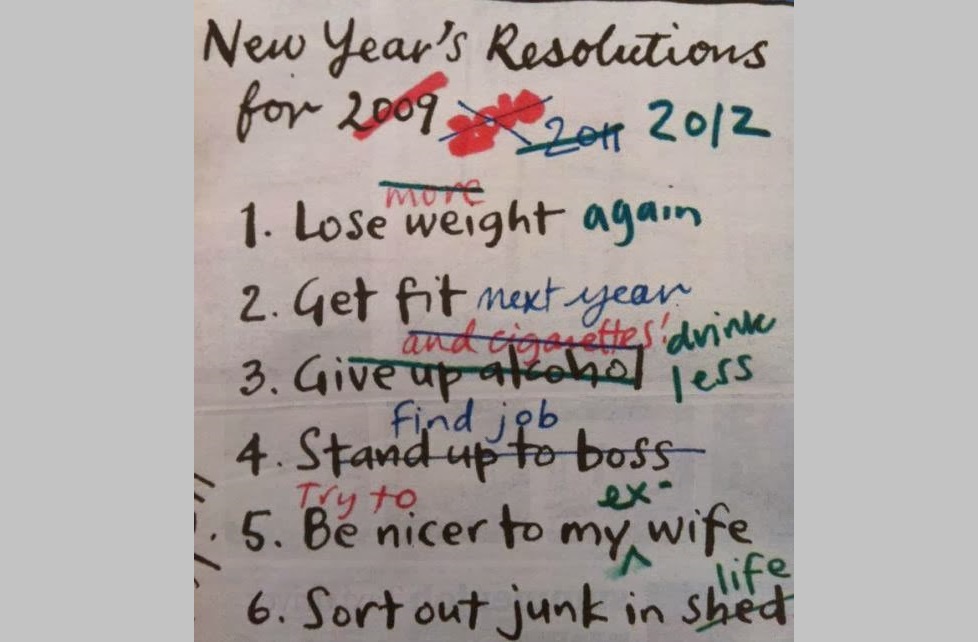 New Year's Resolutions
for 2009 2010 2011 2012
more
1. Lose weight again
2. Get fit next year
and cigarettes! drink
3. Give up alcohol less
find job
4. Stand up to boss
Try to ex-
5. Be nicer to my wife
life
6. Sort out junk in shed